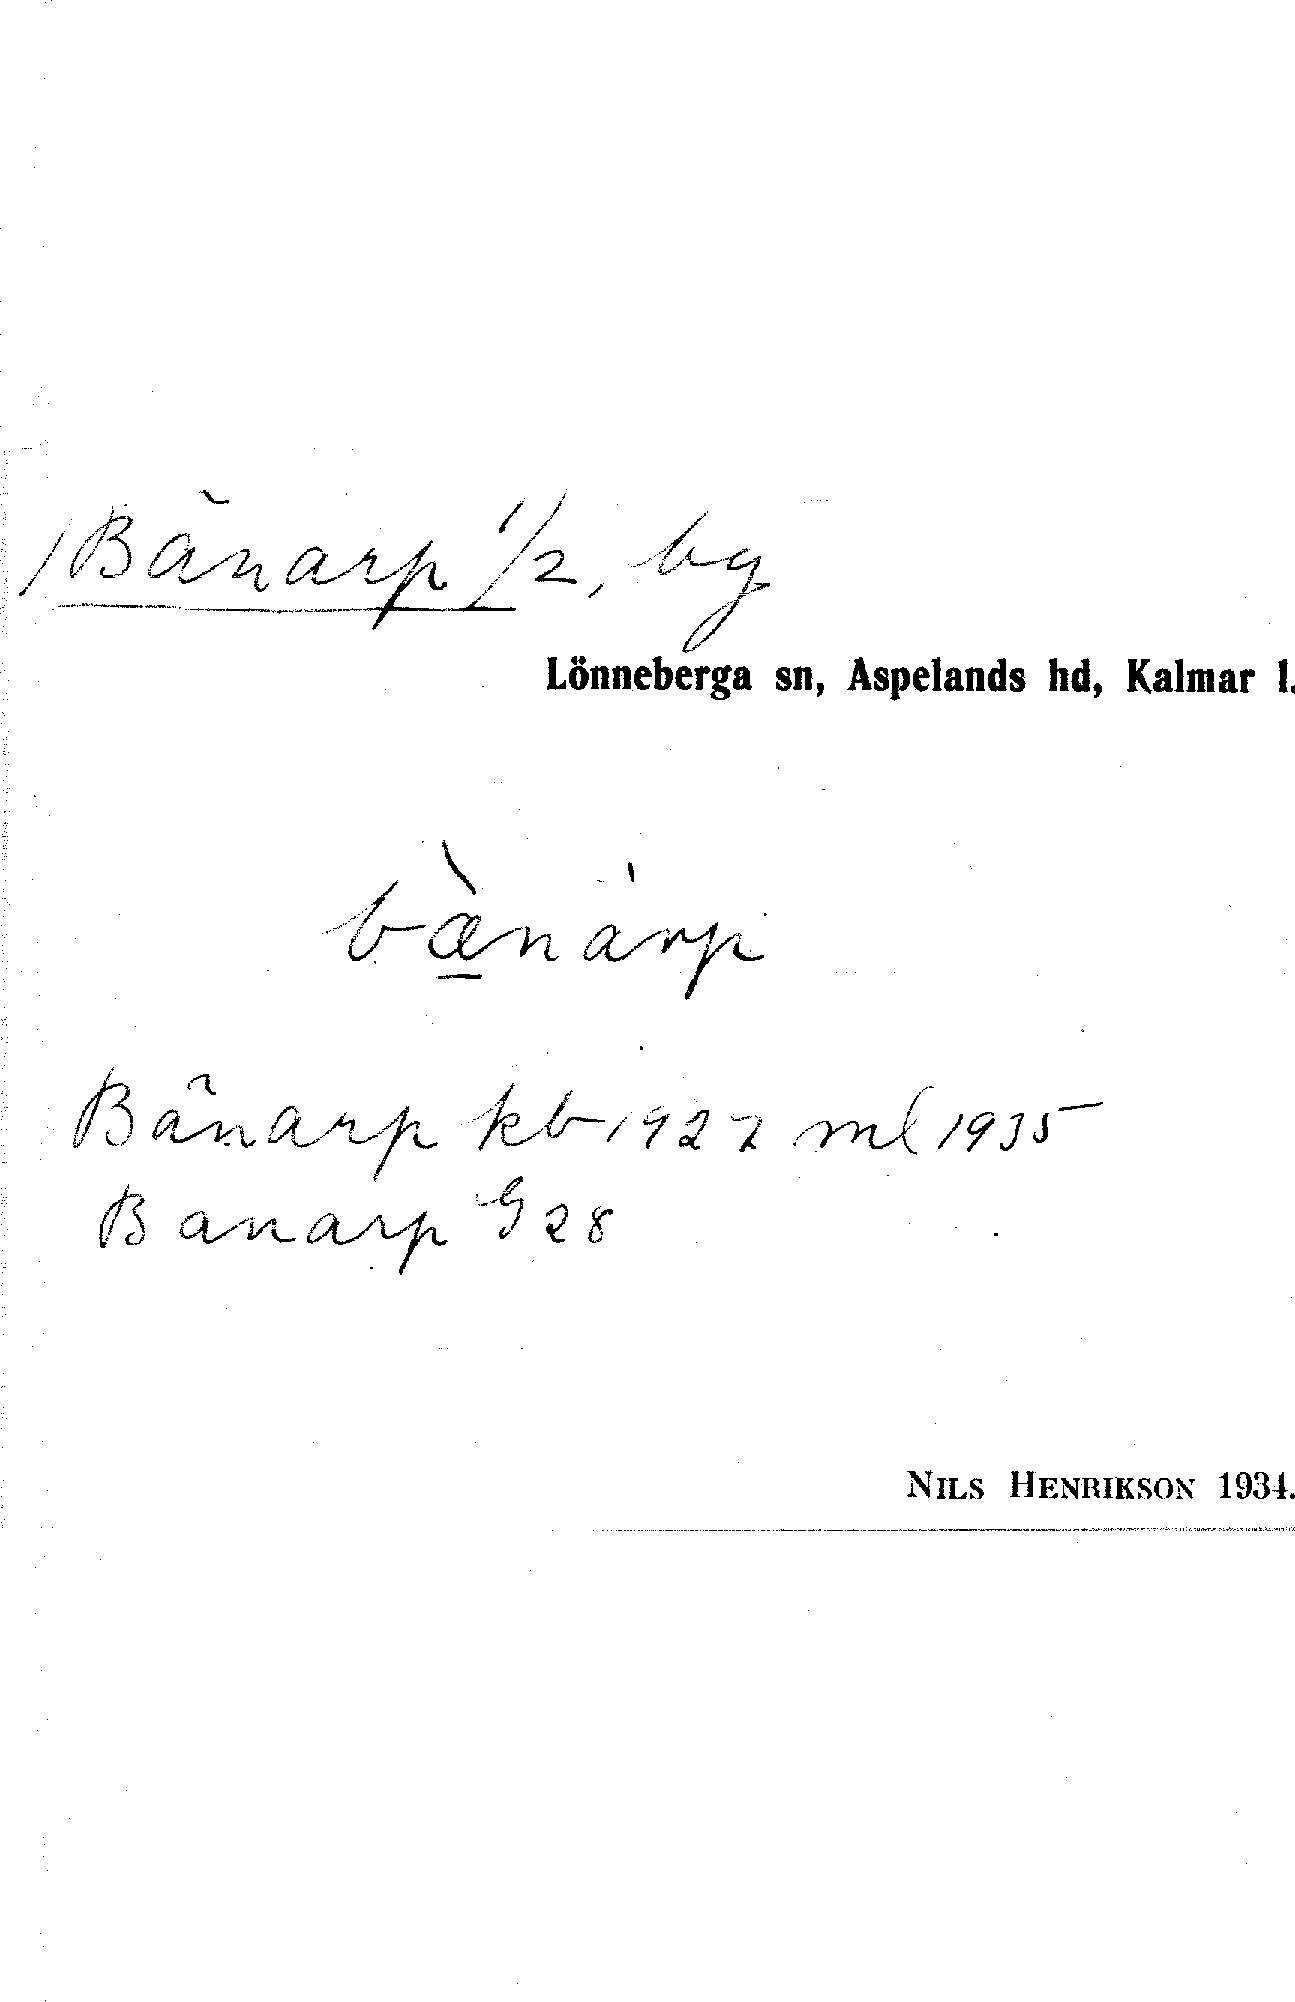 /Bänarp 1/2, by
Lönneberga sn, Aspelands hd, Kalmar l.
bæ̲̀nárp
Bänarp kb 1927 ml 1935
Banarp G 28
NILS HENRIKSON 1934.